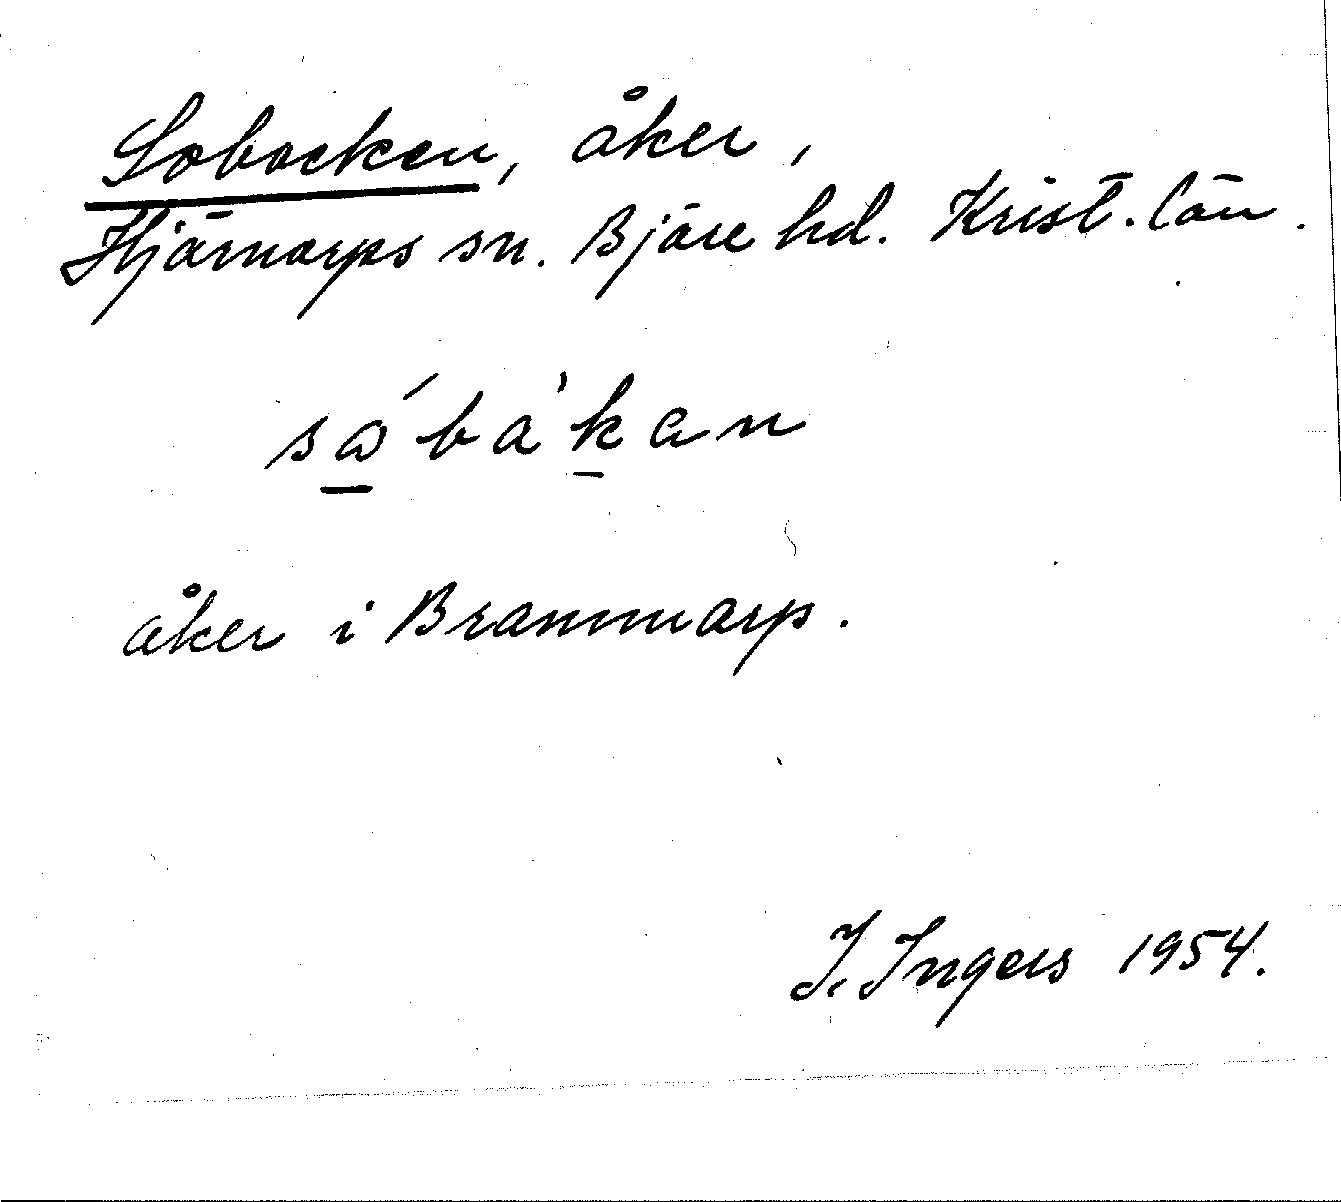 Sobacken, åker,
Hjärnarps sn. Bjäre hd. Krist. län.
såbakan
åker i Brammarp.
I. Ingers 1954.